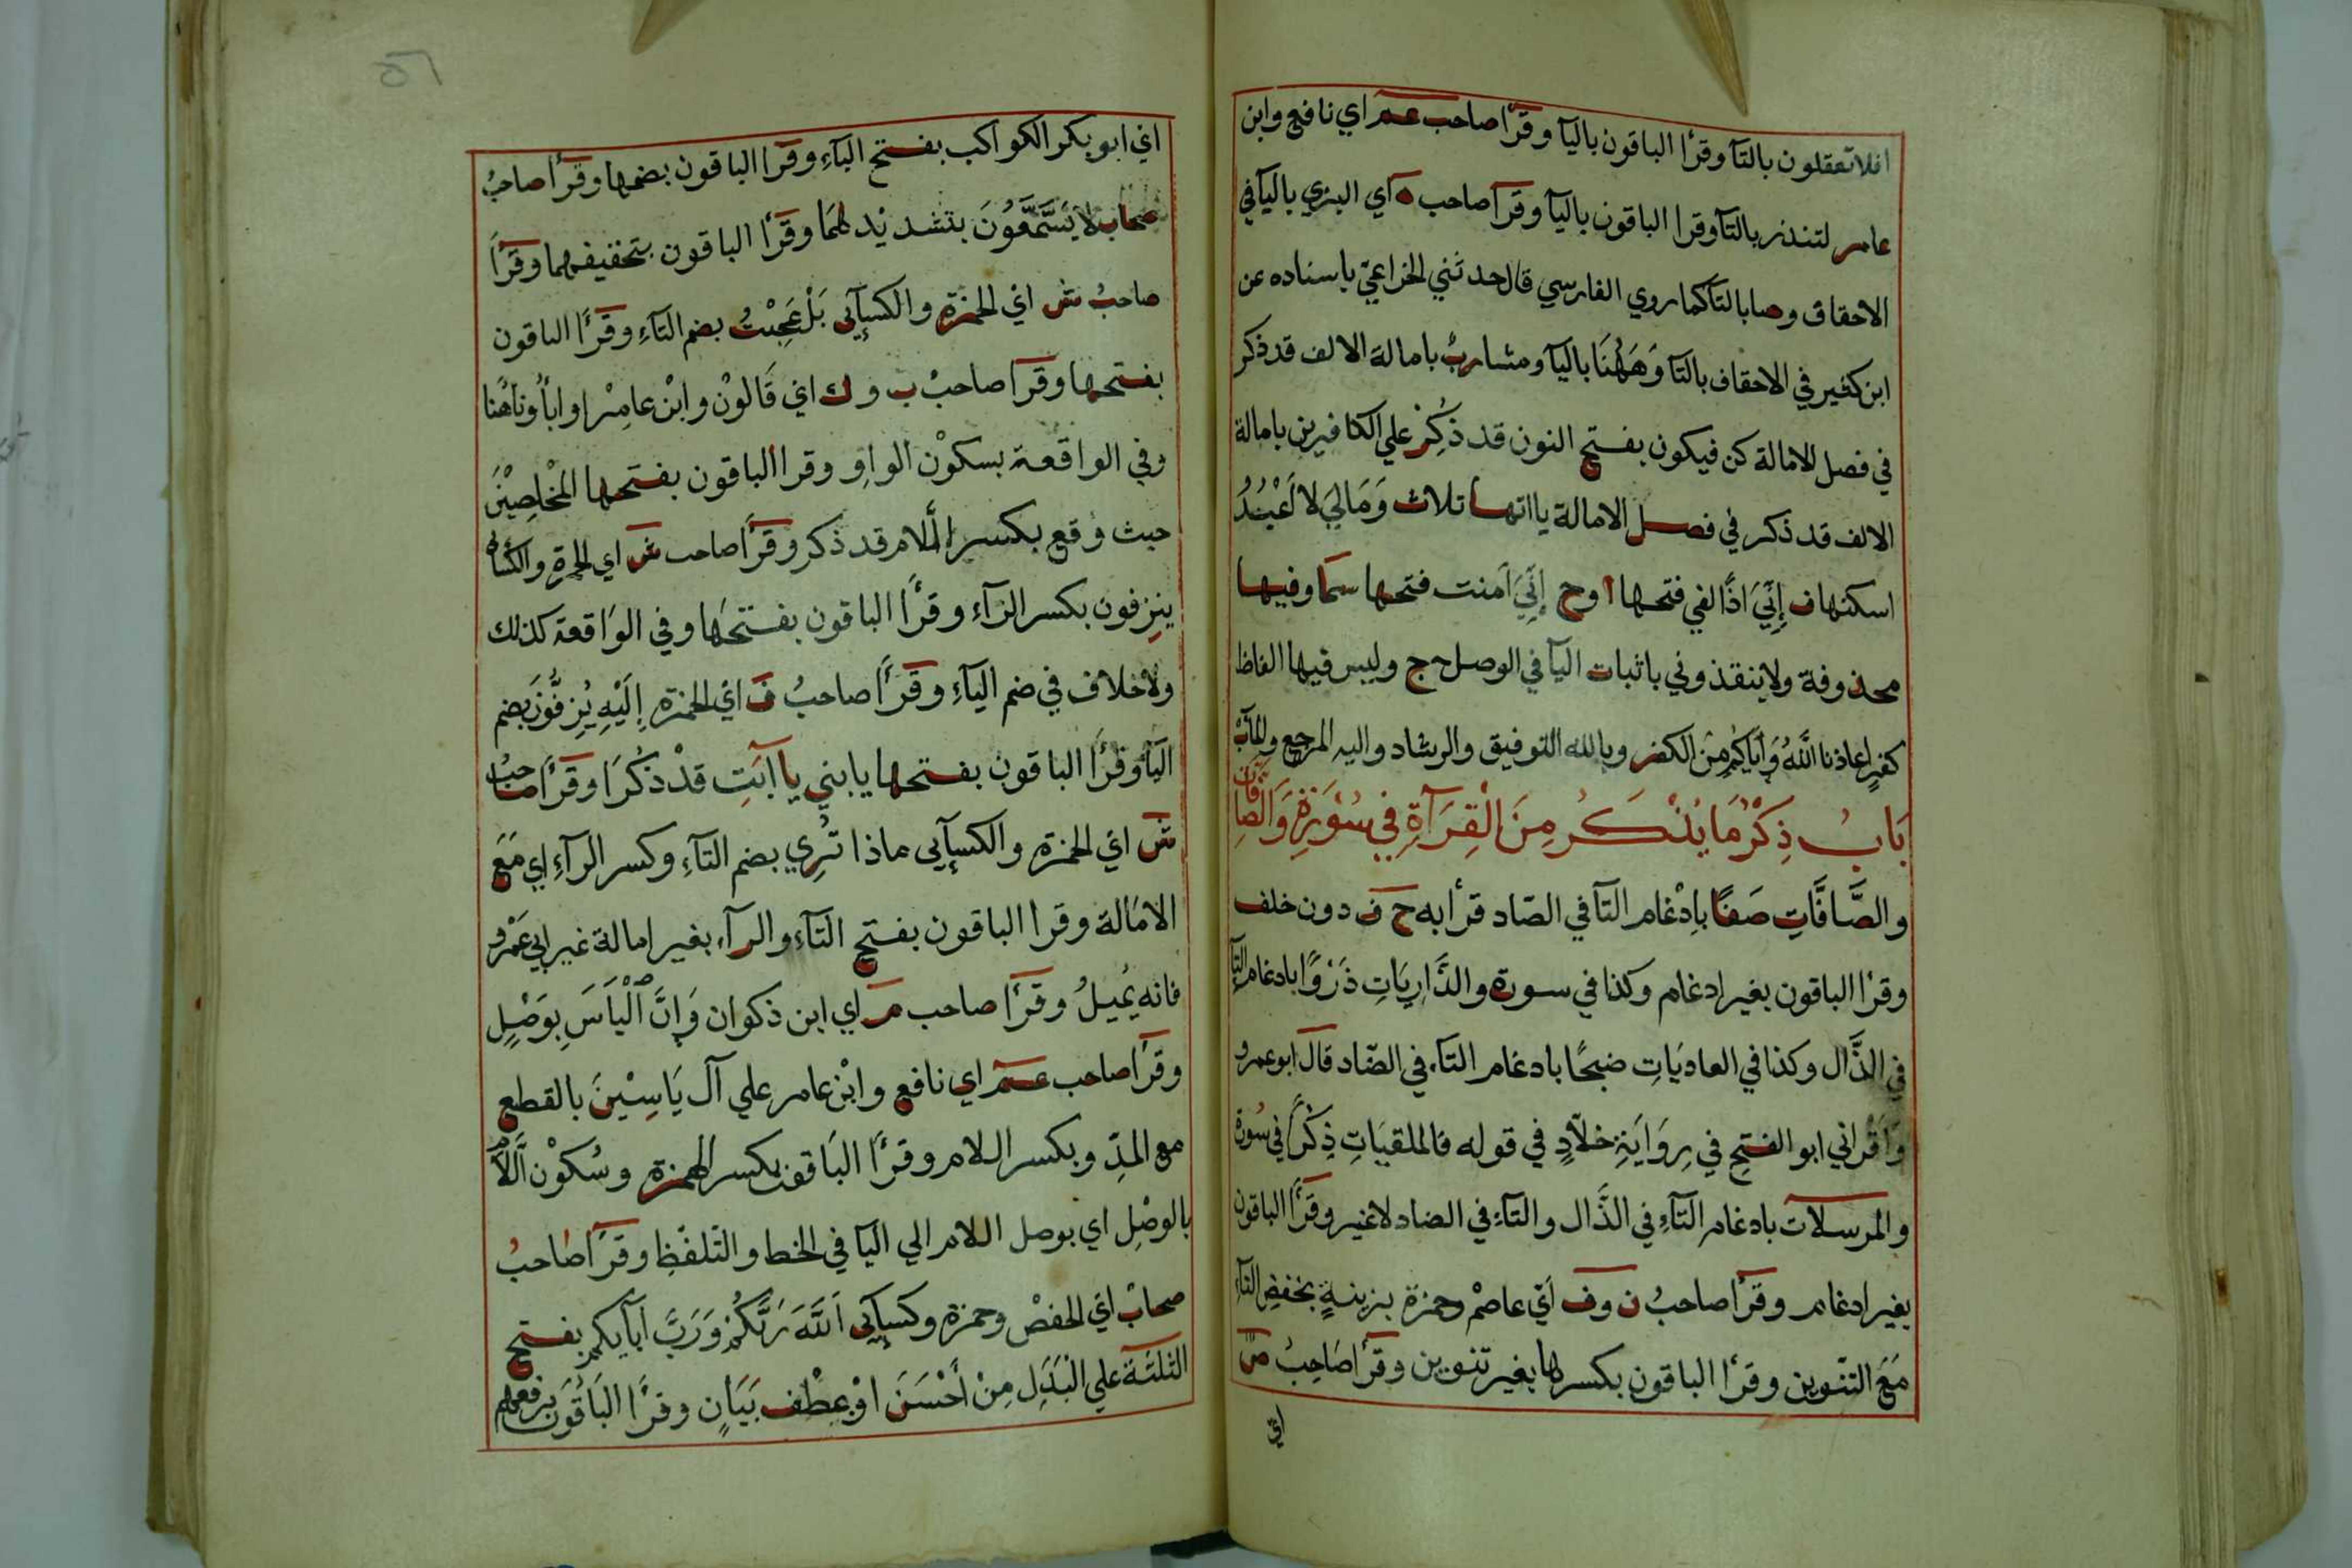 افلا تعقلون بالتآ وقرأ الباقون باليآ وقرأ صاحب عم اي نافع وابن
عامر لتنذر بالتآ وقرا الباقون باليآ وقرأ صاحب ه اي البزي باليآ في
الاحقاف وصا بالتآ كما روي الفارسي قال حدثني الخزاعيّ باسناده عن
ابن كثير في الاحقاف بالتآ وَهَهُنَا باليآ ومشاربُ بامالة الالف قد ذكر
في فصل الامالة كن فيكون بفتح النون قد ذُكِرْ علي الكافرين بامالة
الالف قد ذكر في فصل الامالة يااتها ثلاث وَمَالِيَ لا اَعْبُدُ
اسكنها ف إِنِّيَ اذًا لفي فتحها ا وح إِنِّيَ اَمنت فتحها سما وفيها
محذوفة ولا ينقذوني باثبات اليآ في الوصل ج وليس فيها الفاظ
كفرٍ اعاذنا اللّهُ وَاِيَّاكُمْ مِنَ الكفر وبالله التوفيق والرشاد واليه المرجع والمآبْ
بَابُ ذِكْرُ مَا يُذْكَرُ مِنَ الْقِرَآةِ فِي سُوْرَةِ وَالصَّافَّات
والصَّافَّاتِ صَفًا بِاِدْغام التآ في الصّاد قرأ به ح ف دون خلف
وقرْا الباقون بغير ادغام وكذا في سورة والذَّارِيَاتِ ذَرْوًا بادغام التآ
في الذَّال وكذا في العاديَاتِ ضبحًا بادغام التآء في الضّاد قال ابو عمرو
وَاَقْراني ابو الفتحِ في رِوَايَةِ خلاّدٍ في قوله فالملقيَاتِ ذِكْراً في سُورة
والمرسلات بادغام التآءِ في الذَّال والتآءِ في الضاد لاغير وقرَأ الباقون
بغير ادغام وقرأ صاحبُ ن وف اَيْ عاصمْ وحمزة بزينةٍ بخفضِ التآءِ
مَعَ التّنوين وقرأ الباقون بكسرها بغير تنوين وقرأ صَاحِبُ ص
اي
اي ابو بكر الكواكب بفتح البآءِ وقرَا الباقون بضمها وقرأ صاحبُ
صحاب لا يَسَّمَّعُوُنَ بتشديْد لهمَا وقرَأ الباقون بتخفيفهما وقرَأ
صاحبُ ش اي الحمزة والكسآئي بَلْ عَجِبْتُ بضم التآءِ وقرَأ الباقون
بفتحها وقرَا صاحبْ ب وك اي قَالوْن وابْن عامِرْ اواٰبآُوناهُنا
وفي الواقعة بسكوْن الواوِ وقرا الباقون بفتحها المْخلصِيْنَ
حيث وقع بكسر اللام قد ذكر وقرَأ صاحب ش اي الحمزة والكسآئي
ينزِفون بكسر الزآء وقرأ الباقون بفتحَها وفي الوَاقعة كذلك
ولا خلاف في ضم اليآءِ وقرَأ صاحبُ ف ايْ الحمزة إِلَيْهِ يُزِفُّوْنَ بضم
اليآ وقرَأ الباقون بفتحها يابني يا اَبَتِ قدْ ذكُرَا وقرَأ صاحبُ
ش اي الحمزة والكسآئي ماذا تُرِي بضم التآءِ وكسر الرآءِ اي مَعَ
الامَالة وقرا الباقون بفتح التآءِ والرآء بغير امالة غير ابي عَمْرو
فانه يُميلُ وقرَأ صاحب م اي ابن ذكوان وَإِنَّ ٱلْيَاسَ بِوَصْلٍ
وقرَأ صاحب عم اي نافع وابْن عامر علي اٰل يَاسِيْنَ بالقطع
مع المدِّ وبكسر اللام وقرَأ البَاقون بكسر الهمزة وسُكوْن اللاَّم
بالوصْلِ اي بوصل اللام الي اليآ في الخط والتّلفّظِ وقرَأ صاحبُ
صحابْ ايْ الحفصْ وحمزة وكسآئي اَللّهَ رَبَّكُمْ وَرَبَّ اٰبآئكم بفتح
الثلثة علي الْبَدَلِ مِنْ أَحْسَنَ اوْ عِطْف بَيَانٍ وقرْأ البَاقوُنَ برفعهم